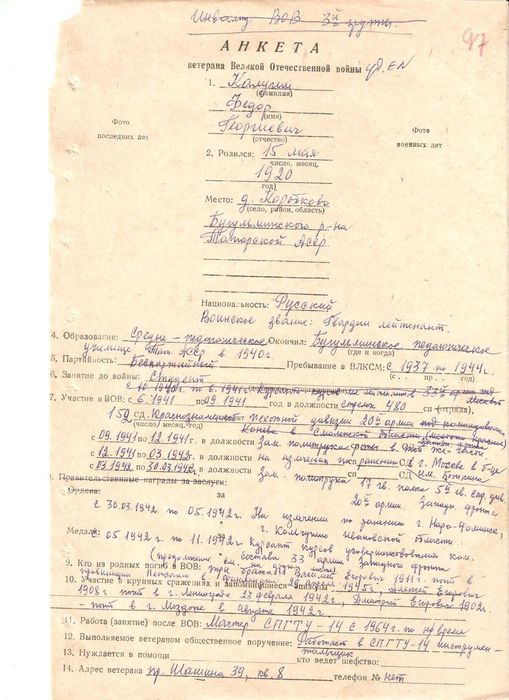 Инвалид ВОВ 3й группы.
97
АНКЕТА
ветерана Великой Отечественной войны
1. Калугин
(фамилия)
Федор
(имя)
Георгиевич
(отчество)
Фото
последних лет
Фото
военных лет
2. Родился: 15 мая
число, месяц,
1920
год)
Место: д. Коробково
(село, район, область)
Бугульминского р-на
Татарской АССР
Национальность: Русский
Воинское звание: Гвардии лейтенант.
4. Образование: Средне-педагогическое Окончил: Бугульминское педагогическое
(где и когда)
училище Тат. АССР в 1940г.
5. Партийность: Беспартийный Пребывание в ВЛКСМ: с 1937 по 1944г.
6. Занятие до войны: Студент
с 10.1940г. по 6.1941г. Курсант курсов мл. лейтенантов
7. Участие в ВОВ: с 6.1941 по 09.1941 в должности стрелок 480 сп
(число) месяц, год)
150 сд. Краснознаменной пехотной дивизии 20й армии под командованием
Конева в Смоленской области
с 09.1941 по 12.1941 в должности Зам. политрука роты в той же части.
с 12.1941 по 03.1942 в должности на излечении по ранению в г. Москве в б-це
с 03.1942 по 30.03.1942 в должности зам. политрука 17 гв. полка 5й гв. стр. див.
20й армии Западн. фронта
Правительственные награды за заслуги:
Ордена:
с 30.03.1942 по 05.1942г. На излечении по ранению г. Наро-Фоминск,
г. Кольчугино Ивановской области.
Медали: с 05.1942г. по 11.1942г. Курсант курсов усовершенствования ком.
состава 33 армии Западного фронта
(продолжение см. на др. листе)
9. Кто из родных погиб в ВОВ: три брата: Василий Егорович 1911г. погиб в
10. Участие в крупных сражениях и запомнившиеся эпизоды: 1945г., Алексей Егорович
1908г. погиб в г. Ленинграде 23 февраля 1942г., Дмитрий Егорович 1902г.
- погиб в г. Моздоке в августе 1942г.
11. Работа (занятие) после ВОВ: Мастер СПГТУ-14 с 1964г. по н/время
12. Выполняемое ветераном общественное поручение: Работает в СПГТУ-14 инструмен-
тальщик
13. Нуждается в помощи кто ведет шефство:
14. Адрес ветерана пр. Шашина 39, кв. 8 телефон № нет